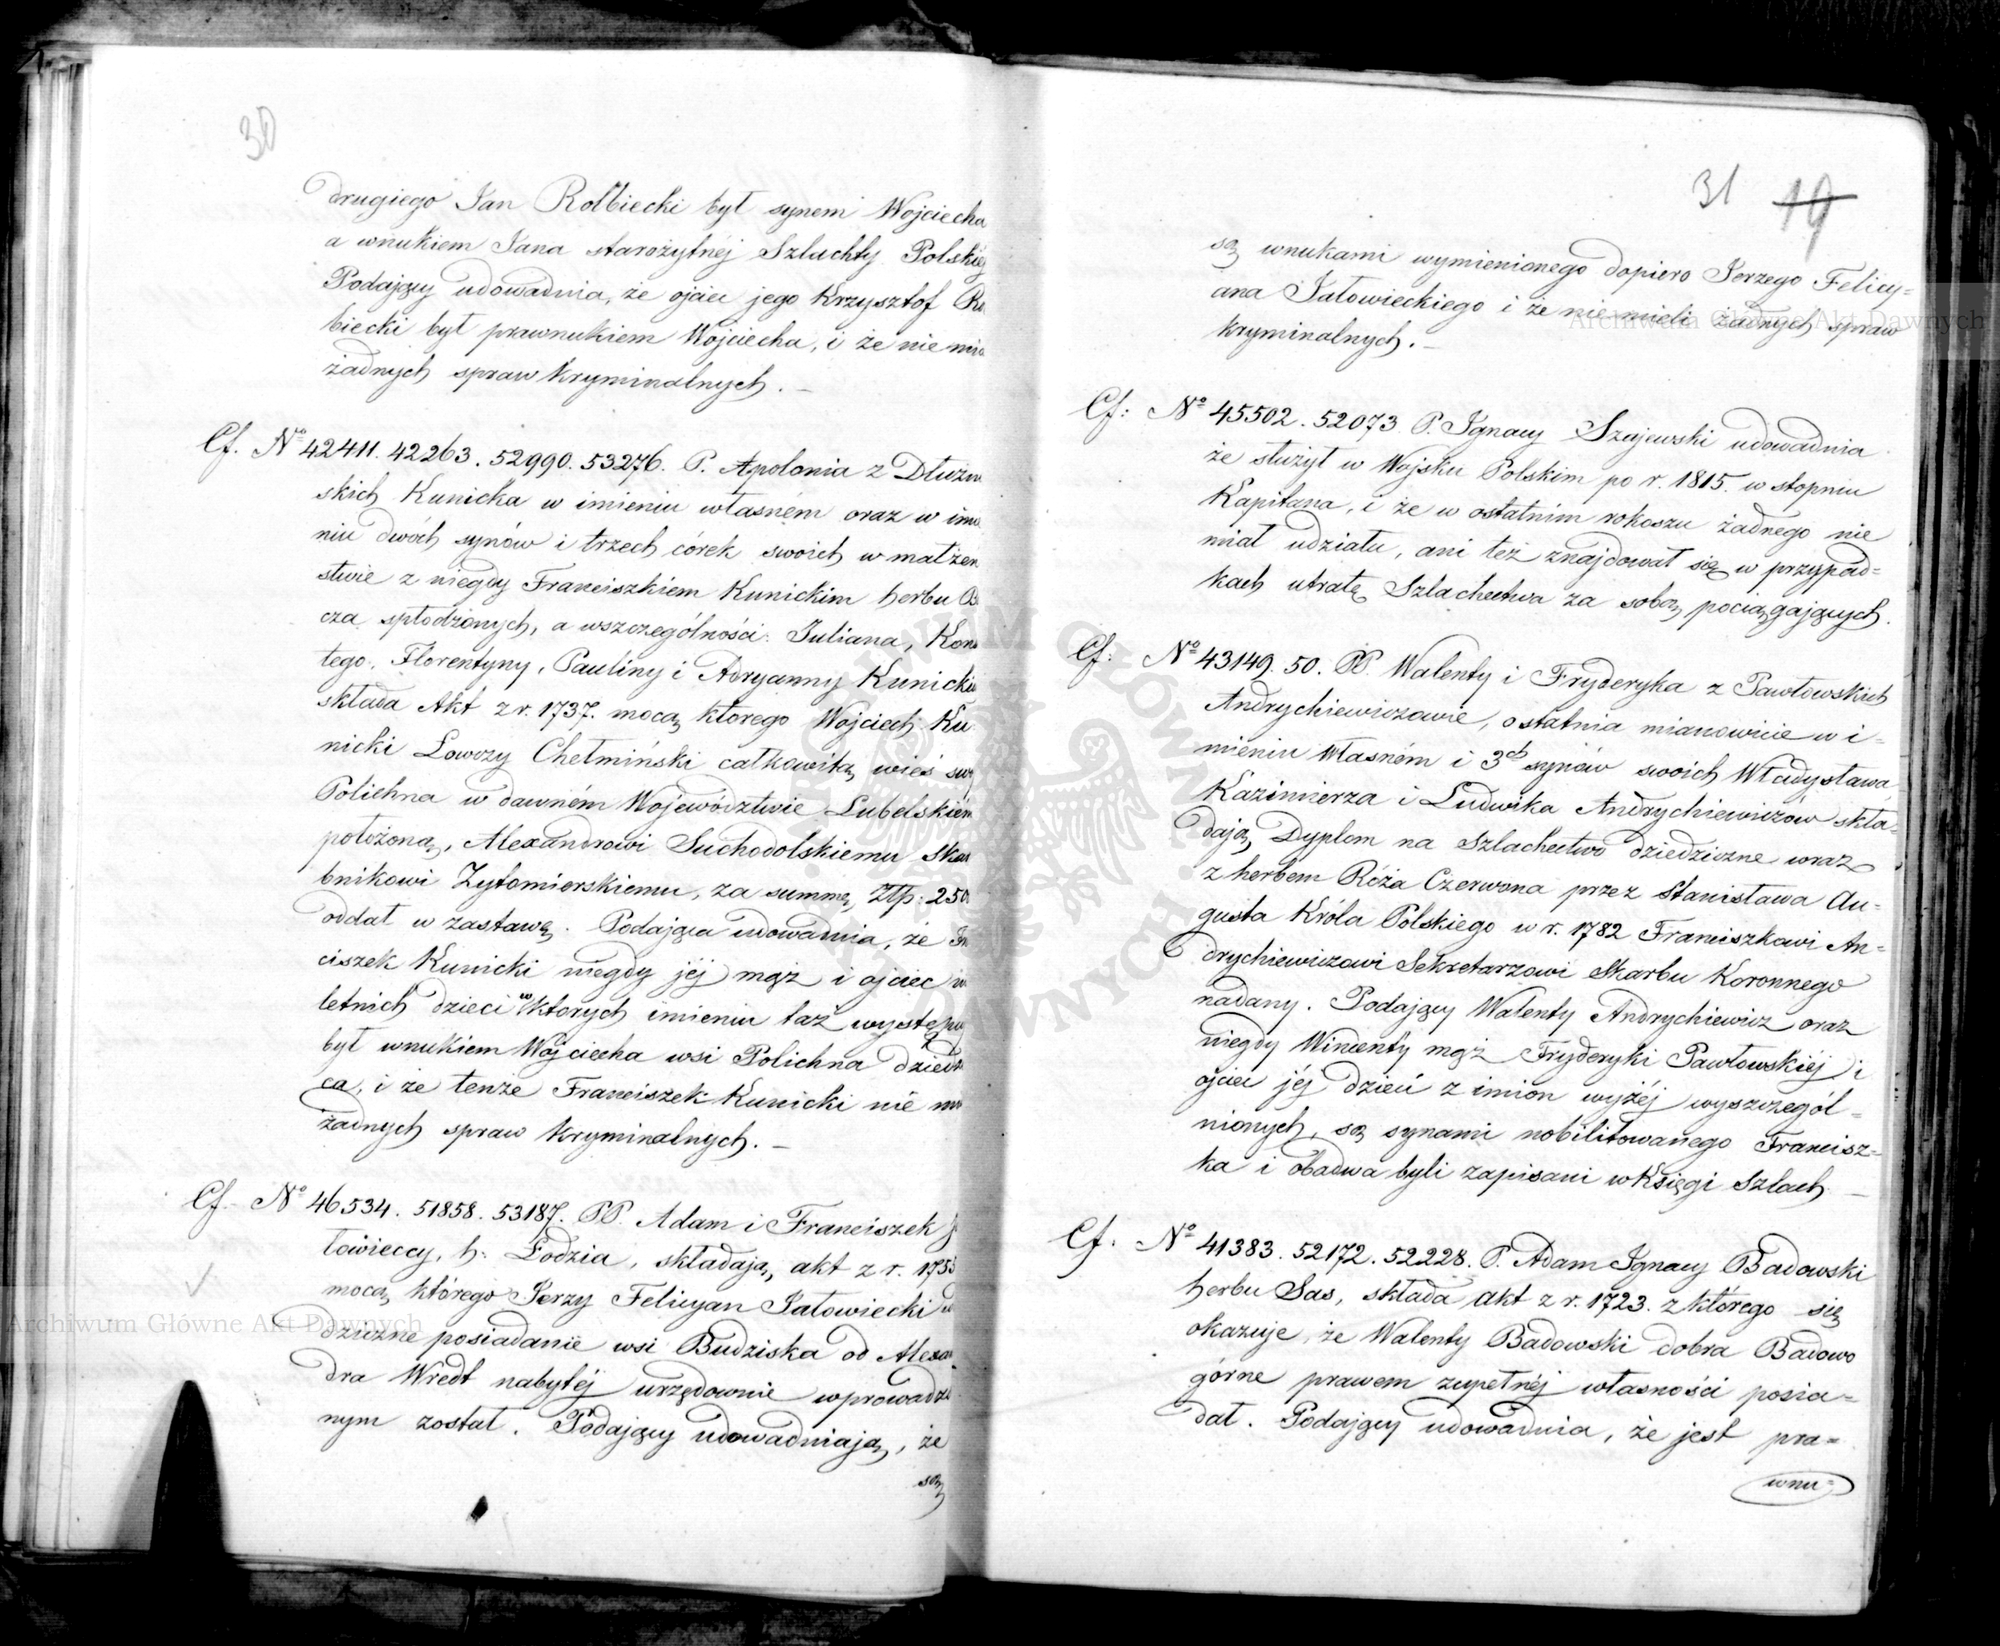 30
drugiego Jan Rolbiecki był synem Wojciecha
a wnukiem Jana starożytnéj Szlachty Polskiéj
Podający udowadnia, że ojciec jego Krzysztof Ro
biecki był prawnukiem Wojciecha, i że nie mia
żadnych spraw kryminalnych. —
Cf. No 42411. 42263. 52990. 53276. P. Apolonia z Dłużew
skich Kunicka w imieniu własném oraz w imie
niu dwóch synów i trzech córek swoich w małżeń
stwie z niegdy Franciszkiem Kunickim herbu Bo
cza spłodzonych, a wszczególności: Juliana, Kons
tego, Florentyny, Pauliny i Adryanny Kunickich
składa Akt z r. 1737. mocą którego Wojciech Ku
nicki Łowczy Chełmiński całkowitą wieś swą
Polichna w dawném Województwie Lubelskiém
położoną, Alexandrowi Suchodolskiemu Skar
bnikowi Żytomierskiemu, za summę Złp: 250
oddał w zastawę. Podająca udowadnia, że Fra
ciszek Kunicki niegdy jéj mąż i ojciec
letnich dzieci w których imieniu taż występuje
był wnukiem Wojciecha wsi Polichna dziedzi
ca, i że tenże Franciszek Kunicki nie miał
żadnych spraw kryminalnych. —
Cf. No 46534. 51858. 53187. PP. Adam i Franciszek Ja
łowieccy, h: Łodzia, składają akt z r. 1753
mocą którego Jerzy Felicyan Jałowiecki w
dziczne posiadanie wsi Budziska od Alexan
dra Wredt nabytéj urzędownie wprowadzo
nym został. Podający udowadniają, że
są
31 19
są wnukami wymienionego dopiero Jerzego Felicy=
ana Jałowieckiego i że nie mieli żadnych spraw
kryminalnych. —
Cf: No 45502. 52073 P. Ignacy Szajewski udowadnia
że służył w Wojsku Polskim po r. 1815. w stopniu
Kapitana, i że w ostatnim rokoszu żadnego nie
miał udziału, ani też znajdował się w przypad=
kach utratę Szlachectwa za sobą pociągających.
Cf: No 43149. 50. PP. Walenty i Fryderyka z Pawłowskich
Andrychiewiczowie, ostatnia mianowicie w i=
mieniu własném i 3ch synów swoich Władysława
Kazimierza i Ludwika Andrychiewiczów skła=
dają Dyplom na Szlachectwo dziedziczne wraz
z herbem Róża Czerwona przez Stanisława Au=
gusta Króla Polskiego w r. 1782 Franciszkowi An=
drychiewiczowi Sekretarzowi Skarbu Koronnego
nadany. Podający Walenty Andrychiewicz oraz
niegdy Wincenty mąż Fryderyki Pawłowskiéj i
ojciec jéj dzieci z imion wyżéj wyszczegól=
nionych, są synami nobilitowanego Francisz=
ka i obadwa byli zapisani w Księgi Szlach. —
Cf. No 41383. 52172. 52228. P. Adam Ignacy Badowski
herbu Sas, składa akt z r. 1723. z którego się
okazuje, że Walenty Badowski dobra Badowo
górne prawem zupełnéj własności posia=
dał. Podający udowadnia, że jest pra=
wnu=
Archiwum Główne Akt Dawnych
Archiwum Główne Akt Dawnych